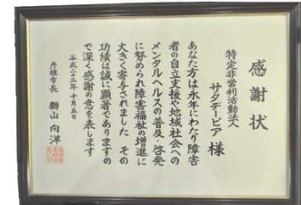 感謝状
特定非営利活動法人
サタデーピア 様
あなた方は永年にわたり障害
者の自立支援や地域社会への
メンタルヘルスの普及・啓発
に努められ障害福祉の増進に
大きく寄与されました その
功績は誠に顕著でありますの
で深く感謝の意を表します
平成二十三年十月五日
彦根市長 獅山向洋